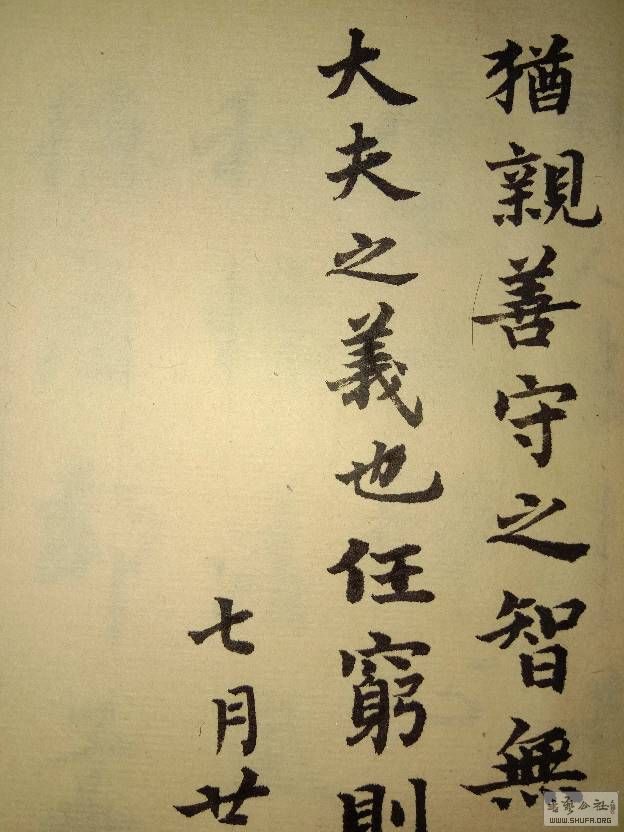 猶親善守之智無
大夫之義也任窮則
七月廿
WWW.SHUFA.ORG